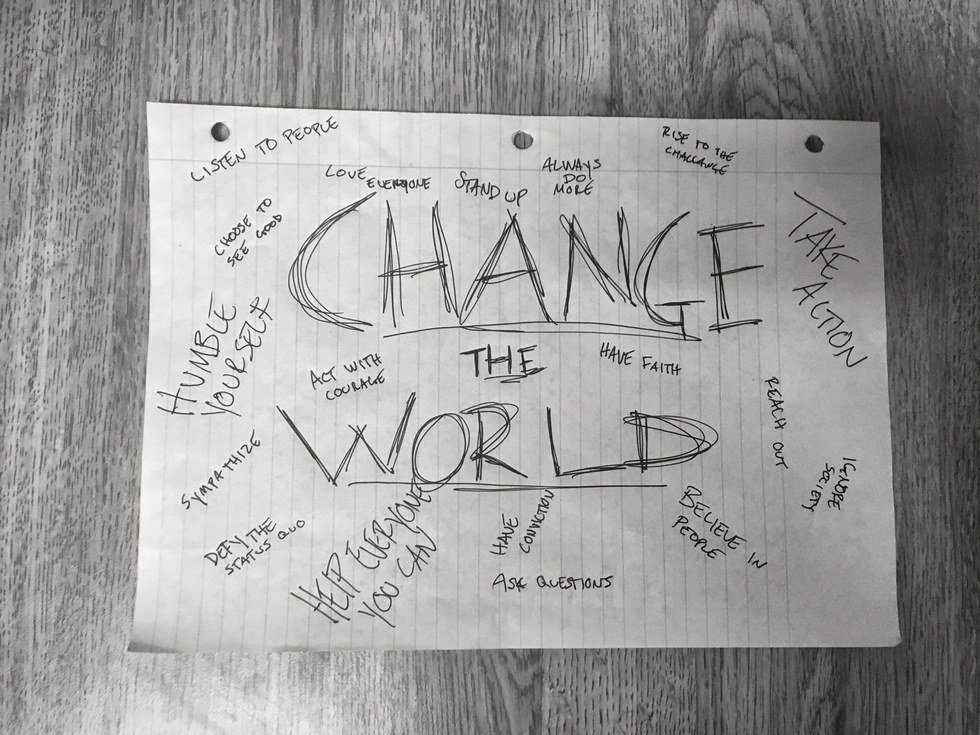 LISTEN TO PEOPLE
LOVE
EVERYONE
STAND UP
ALWAYS
DO
MORE
RISE TO THE
CHALLANGE
CHOOSE TO
SEE GOOD
CHANGE
TAKE
ACTION
HUMBLE
YOURSELF
ACT WITH
COURAGE
THE
HAVE FAITH
WORLD
REACH OUT
SYMPATHIZE
IGNORE
SOCIETY
DEFY THE
STATUS QUO
HELP EVERYONE
YOU CAN
HAVE
CONVICTION
BELIEVE IN
PEOPLE
ASK QUESTIONS